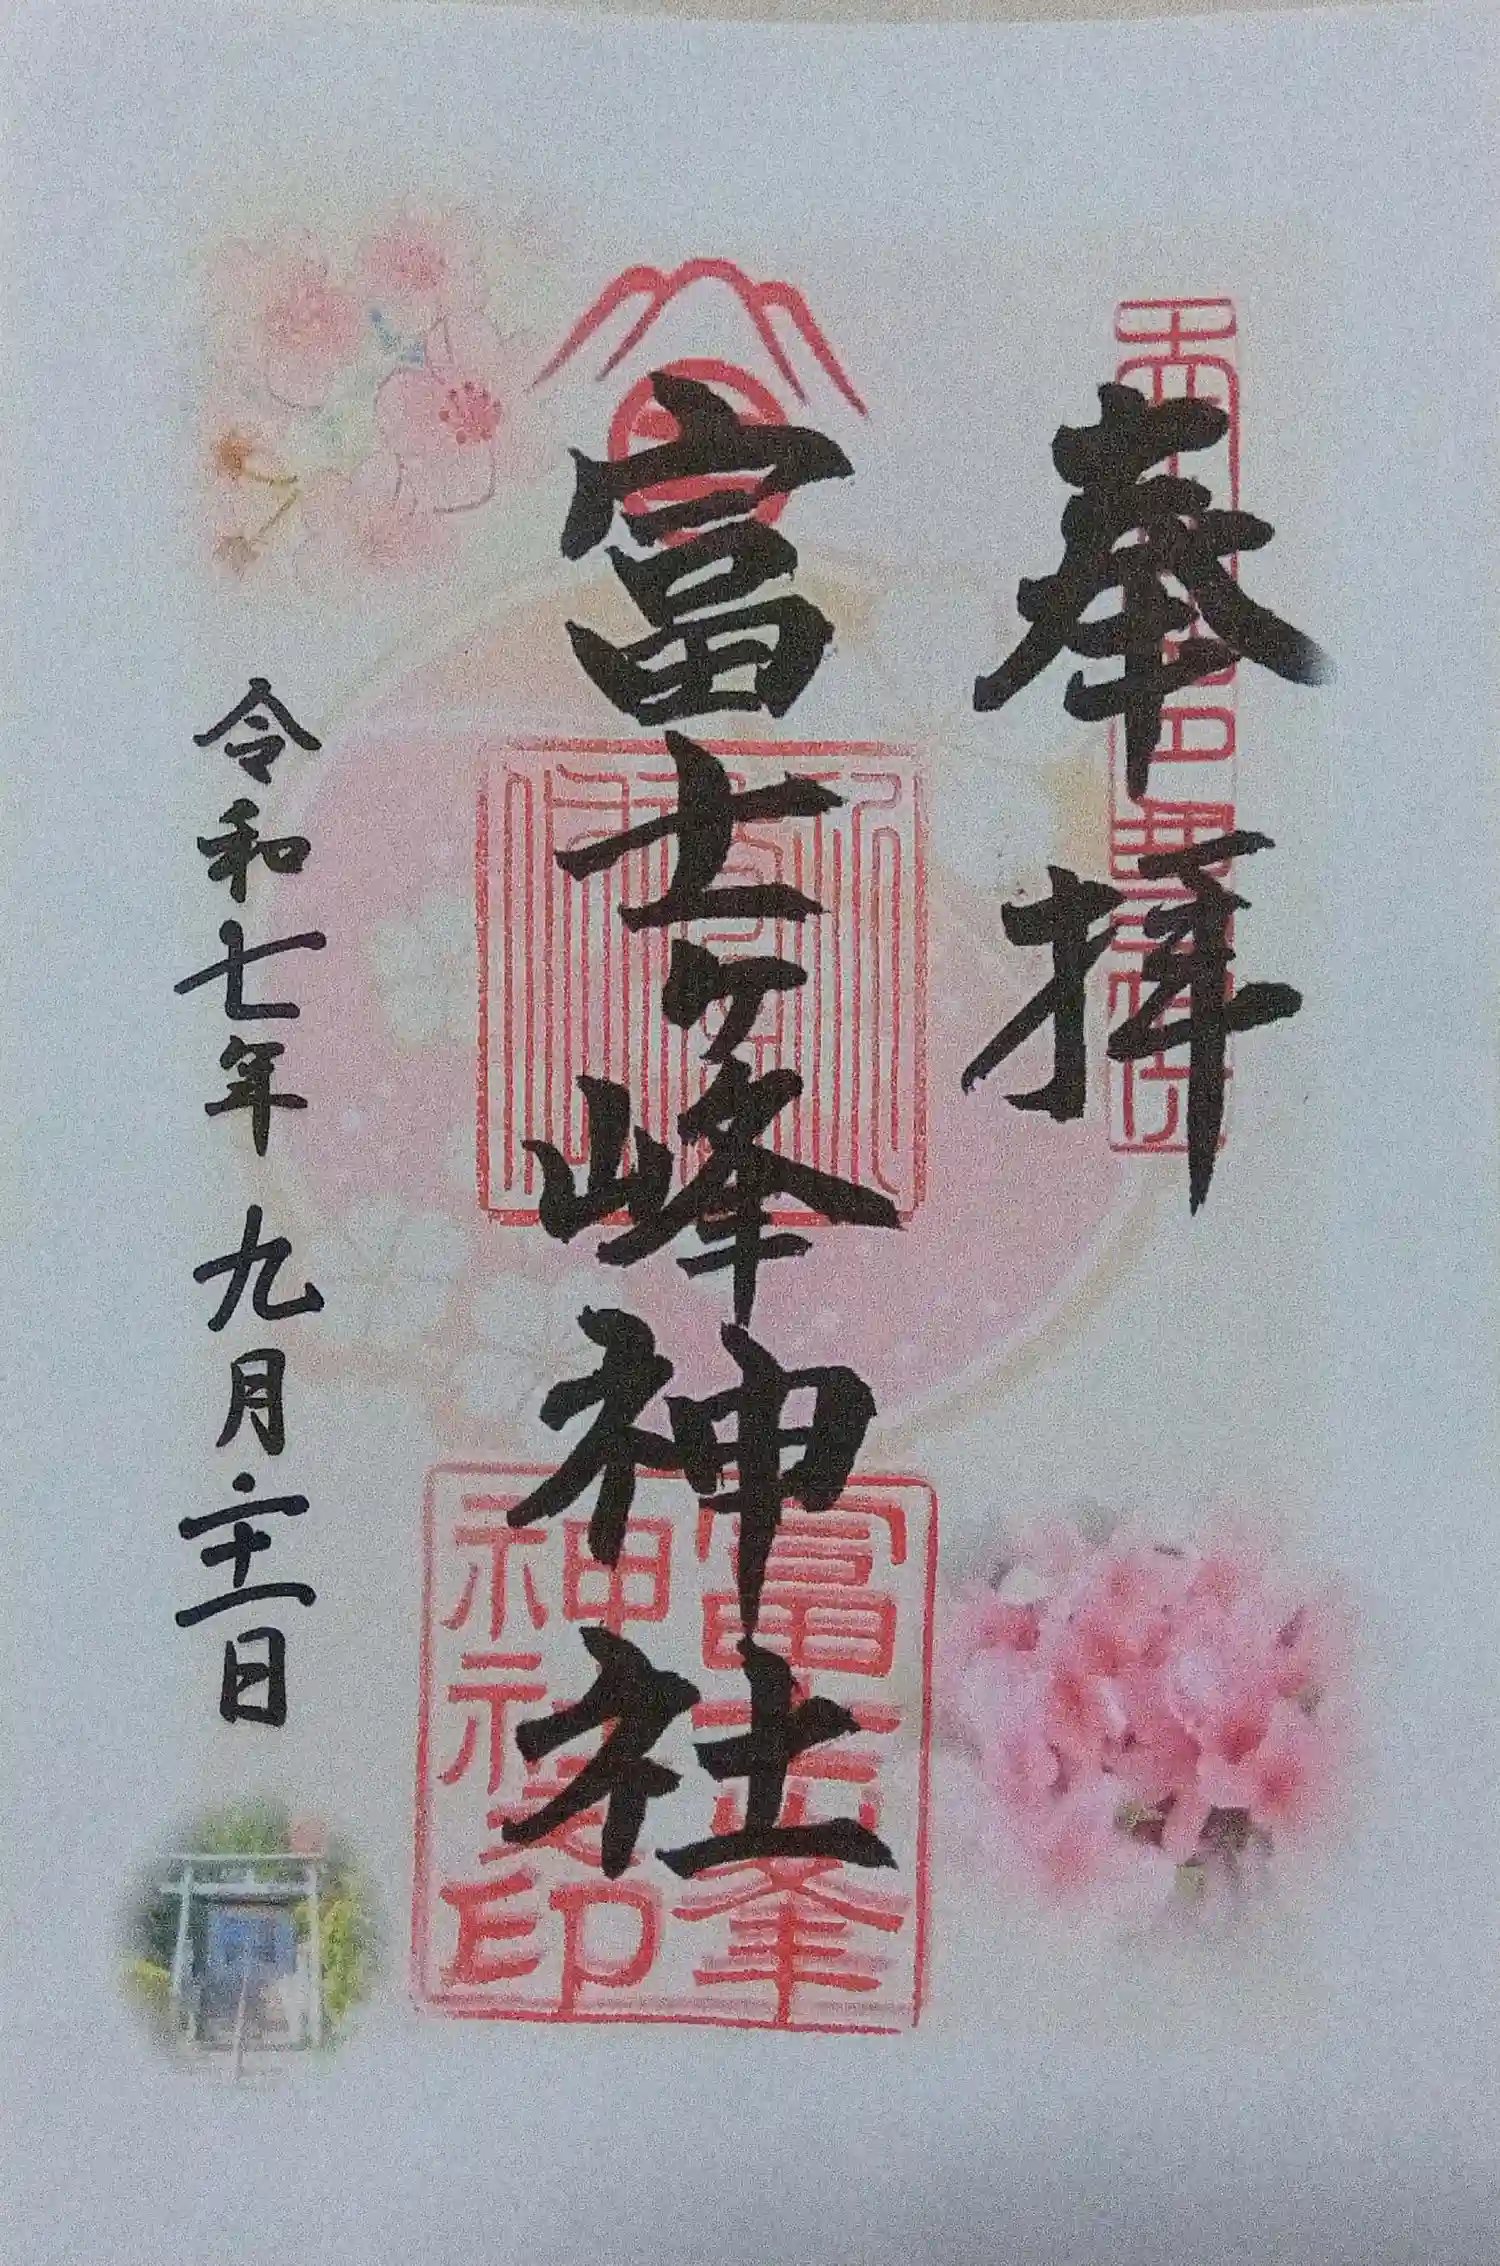 奉拝
富士ヶ峰神社
富士峯
神社之印
令和七年 九月二十一日